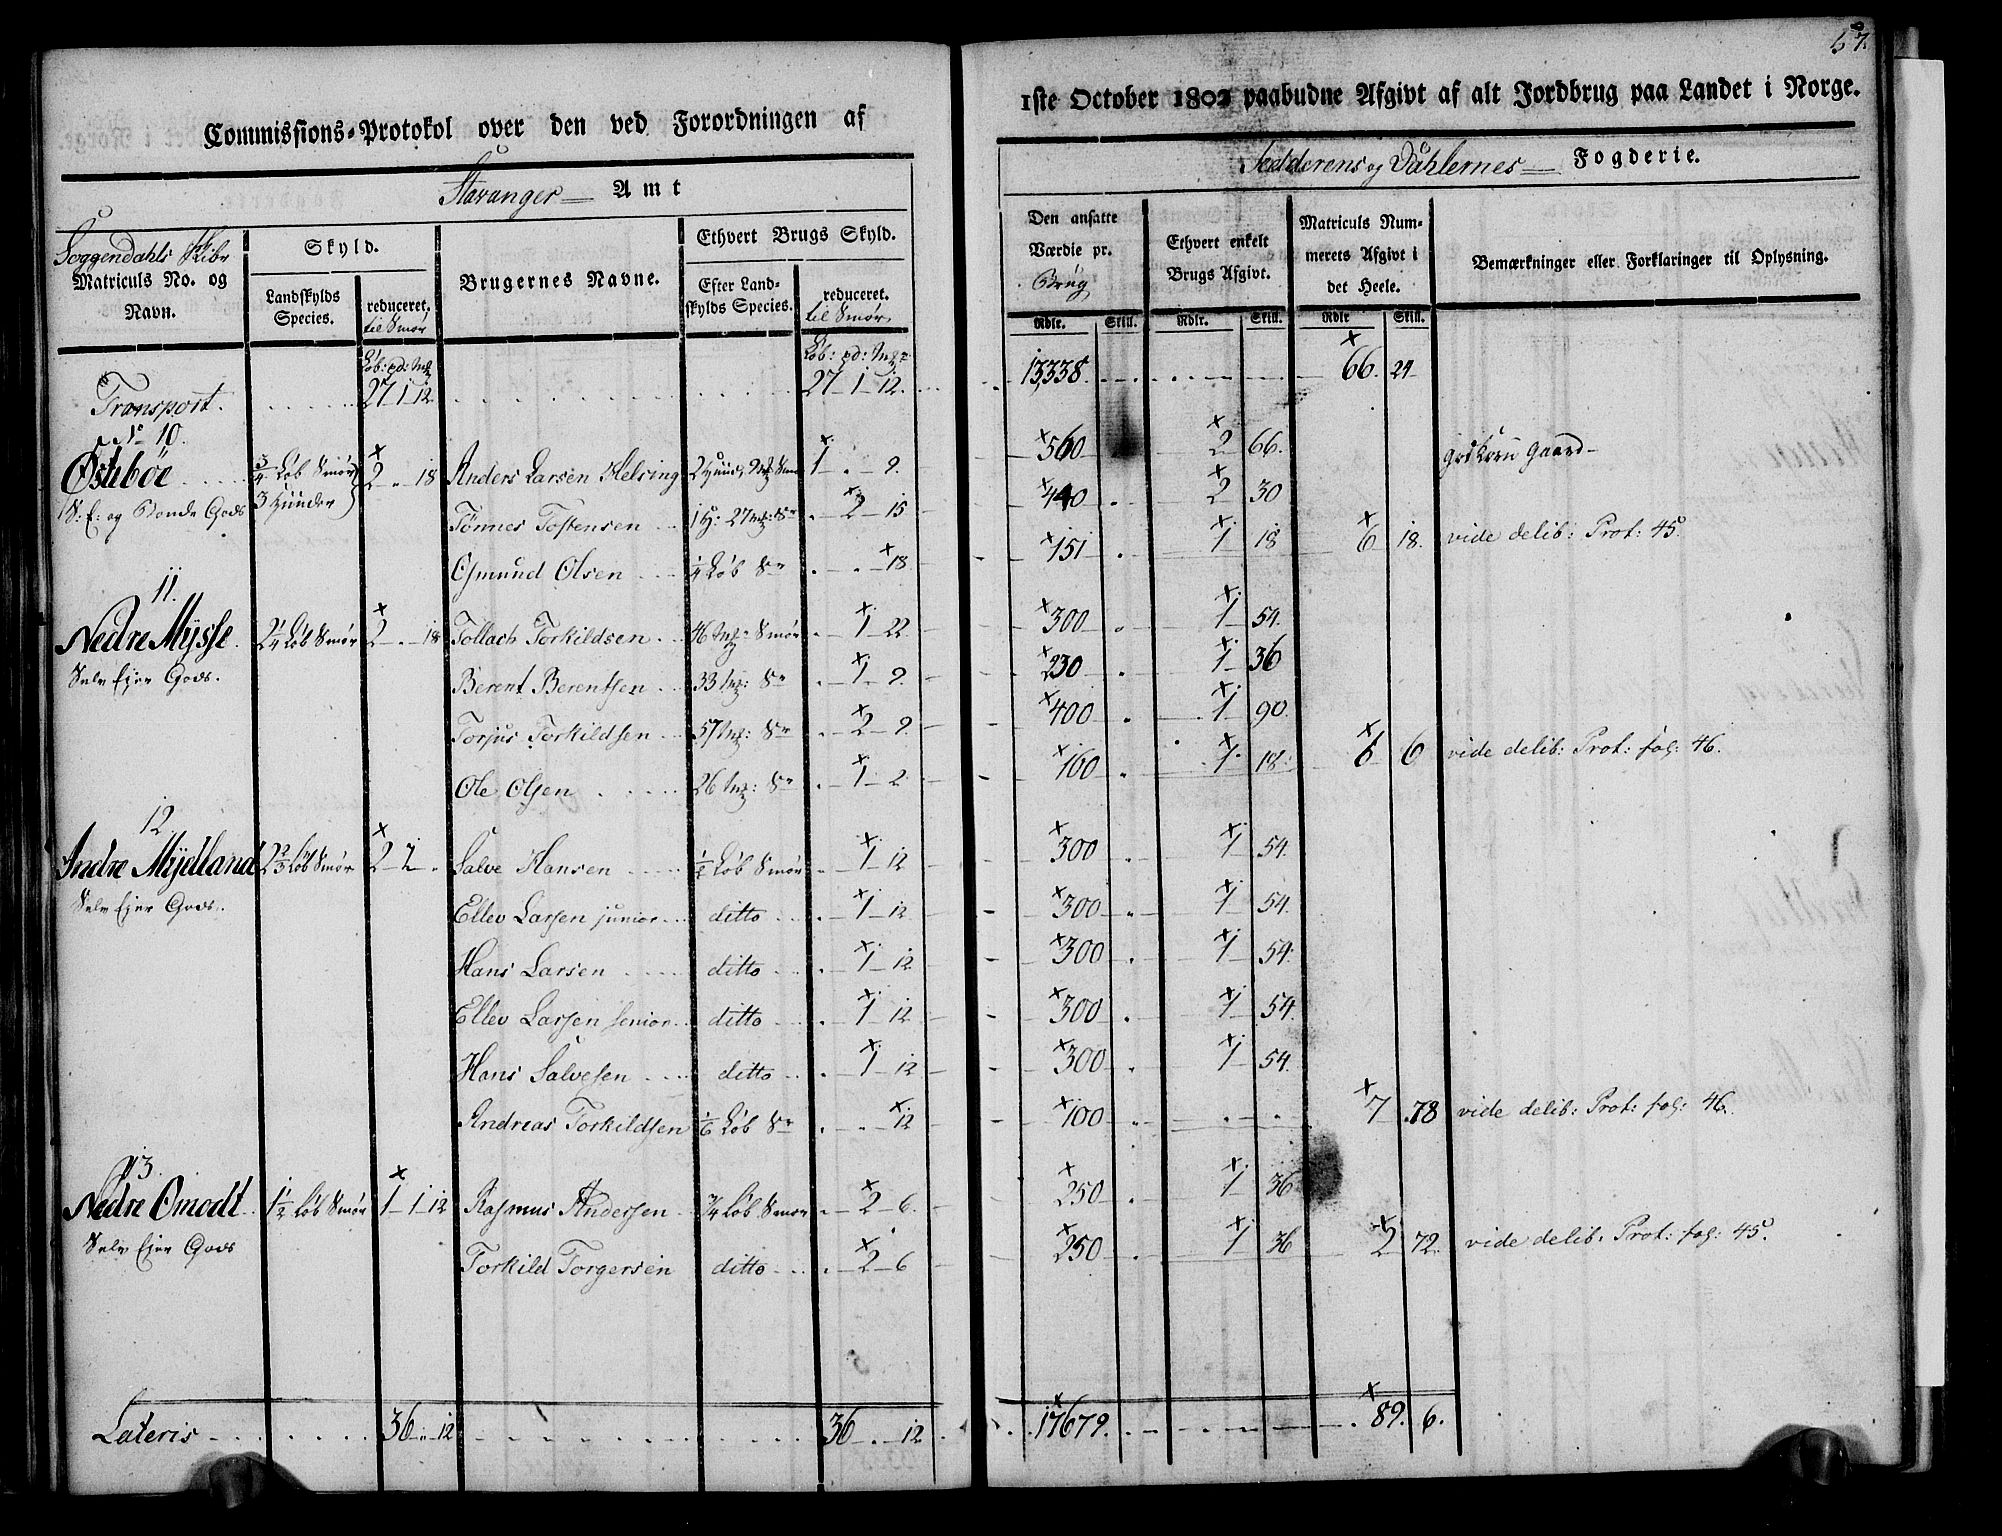 57.
Commissions-Protokol over den ved Forordningen af 1ste October 1802 paabudne Afgivt af alt Jordbrug paa Landet i Norge.
Stavanger Amt
Jedderens og Dahlernes Fogderie.
Soggendahls Skibr
Matriculs No. og Navn.
Skyld.
Landskylds Species.
reduceret. til Smør
Brugernes Navne.
Ethvert Brugs Skyld.
Efter Landskylds Species.
reduceret. til Smør
Den ansatte Værdie pr. Brug
Ethvert enkelt Brugs Afgivt.
Matriculs Nummerets Afgivt i det Heele.
Bemærkninger eller Forklaringer til Oplysning.
Rdlr. Skill. Rdlr. Skill. Rdlr Skill.
Løb: pd: Mk Løb: pd: Mk
Transport. 27 1 12 27 - 1 - 12. 13,338. 66. 24
No 10.
Østebøe 3/4 Løb Smør 3 Hunder 2 " 18 Anders Larsen Helsing 2 Huder, 9 Mk Smør 1 . - 9. 560 2 66.
S: E: og Bonde Gods Tønnes Tostensen 1 H: 27 Mk: Sr . - 2 - 15 440 2 30
Osmund Olsen 1/4 Løb Sr . . - 18 151 1 18 6 18. vide delib: Prot: 45
11.
Nedre Mysse 2 1/4 Løb Smør 2 " 18 Tollach Torkildsen 46 Mk Smør . - 1 - 22 300 1 54.
Selv Ejer Gods. Berent Berentsen 33 Mk: Sr . - 1 - 9. 230 1 36
Torjus Torkildsen 57 Mk: Sr . - 2 - 9. 400 1 90.
Ole Olsen 26 Mk: Sr . - 1 - 2. 160 1 18. 6 6 vide delib: Prot: fol: 46.
12.
Indre Mydland 2 2/3 Løb Smør 2 - 2 " Salve Hansen 1/2 Løb Smør . - 1 - 12 300 1 54.
Selv Ejer Gods. Ellev Larsen junior ditto . - 1 - 12 300 1 54.
Hans Larsen ditto . - 1 - 12 300 1 54.
Ellev Larsen senior ditto . - 1 - 12 300 1 54.
Hans Salvesen ditto . - 1 - 12 300 1 54.
Andreas Torkildsen 1/6 Løb Sr . . - 12 100 7 78 vide delib: Prot: fol: 46.
13.
Nedre Omodt 1 1/2 Løb Smør 1 - 1 - 12 Rasmus Andersen 3/4 Løb Smør . - 2 - 6. 250 1 36
Selv Ejer Gods Torkild Torgersen ditto . - 2 - 6 250 1 36 2 72. vide delib: Prot: fol: 45.
Lateris 36 " 12 36 . - 12 17679. 89. 6.